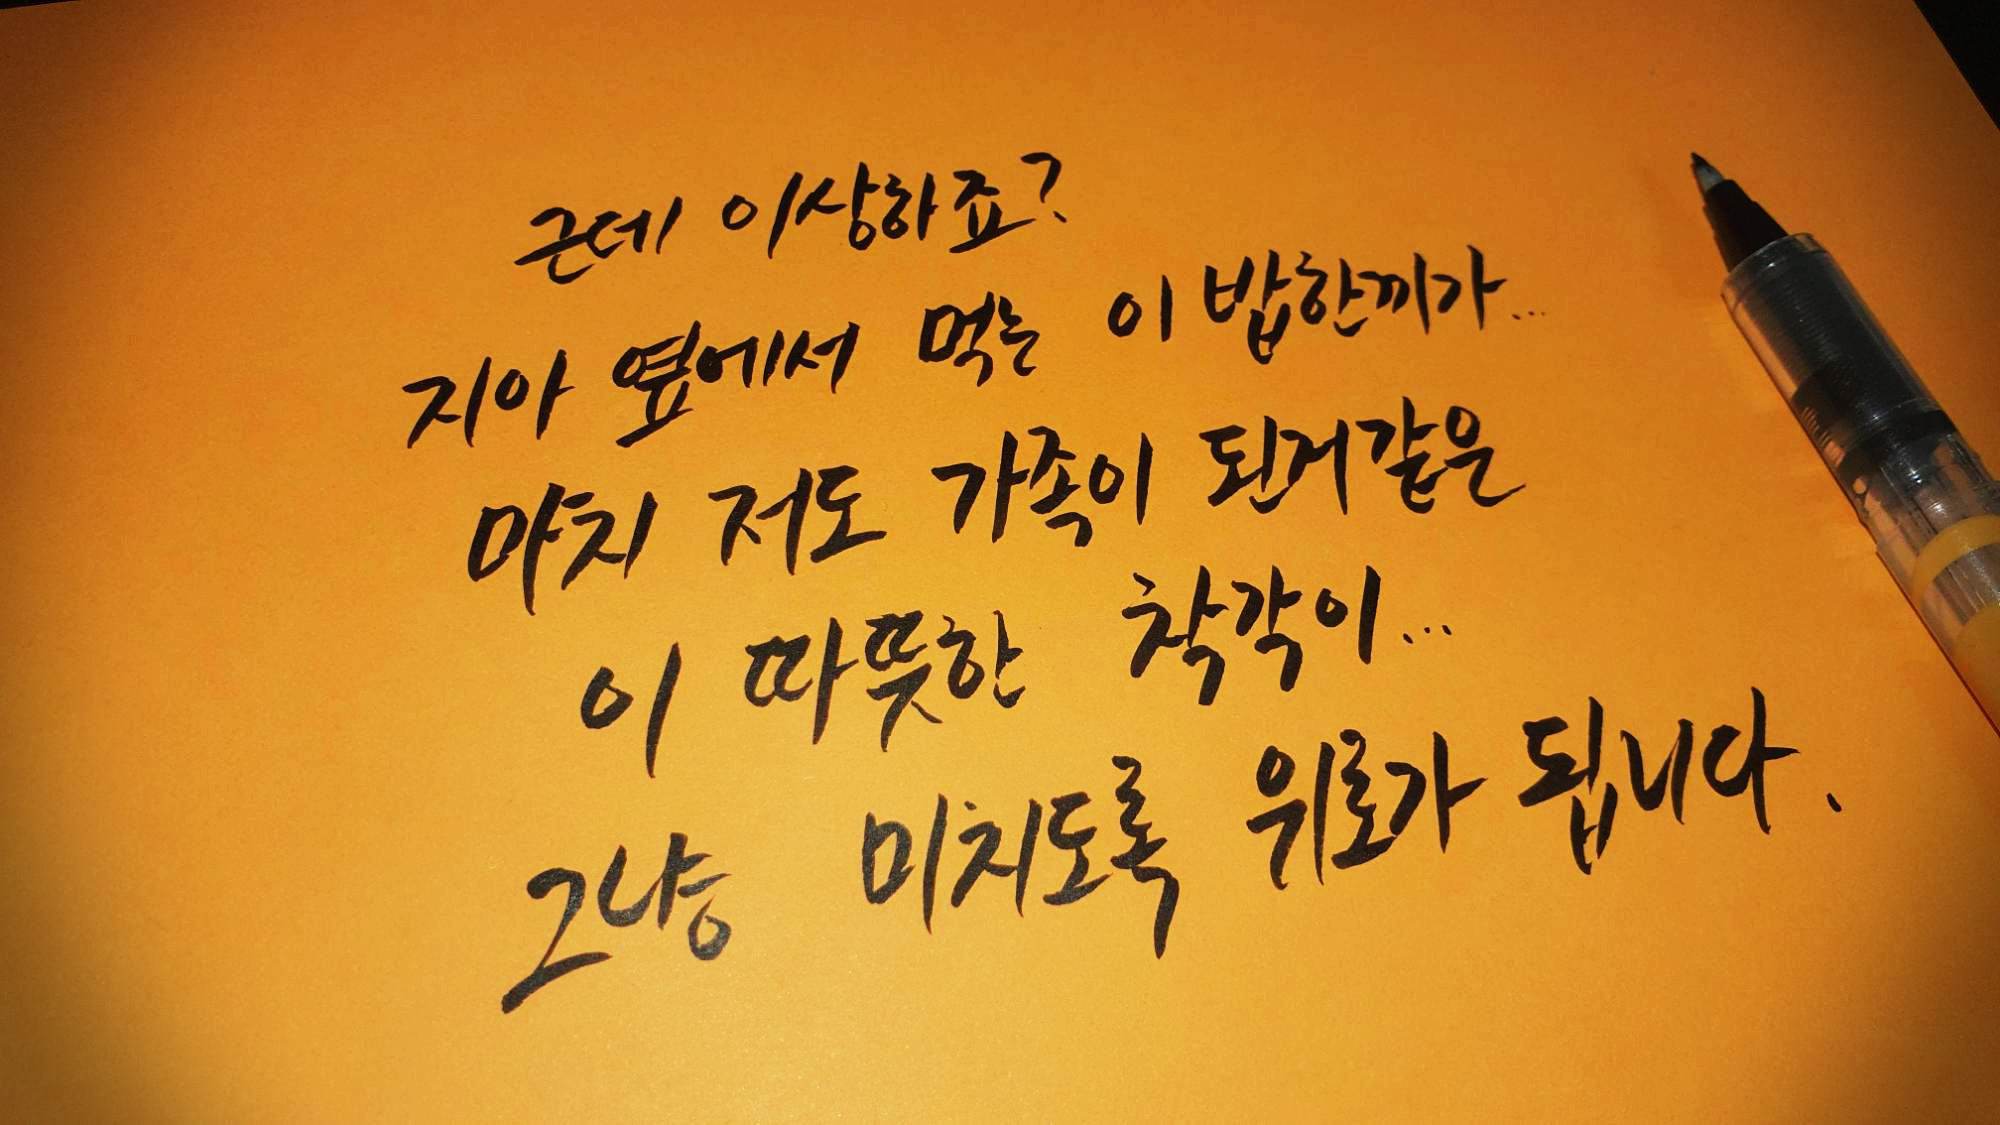 근데 이상하죠?
지아 옆에서 먹는 이 밥한끼가...
마치 저도 가족이 된거같은
이 따뜻한 착각이...
그냥 미치도록 위로가 됩니다.